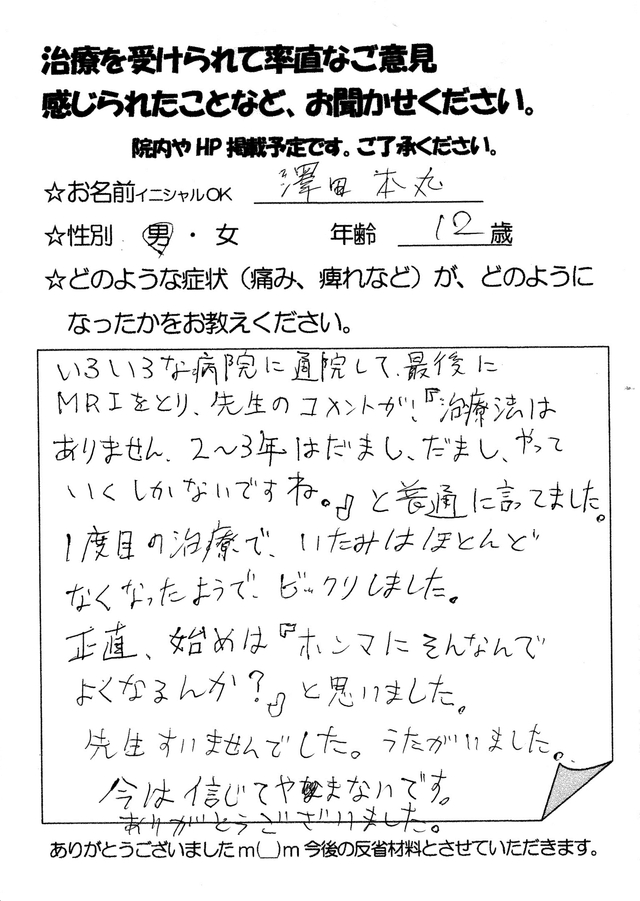 治療を受けられて率直なご意見
感じられたことなど、お聞かせください。
院内やHP掲載予定です。ご了承ください。
☆お名前イニシャルOK 澤田本丸
☆性別 男・女 年齢 12歳
☆どのような症状（痛み、痺れなど）が、どのように
なったかをお教えください。
いろいろな病院に通院して、最後に
MRIをとり、先生のコメントが！『治療法は
ありません。2〜3年はだまし、だまし、やって
いくしかないですね。』と普通に言ってました。
1度目の治療で、いたみはほとんど
なくなったようで、ビックリしました。
正直、始めは『ホンマにそんなんで
よくなるんか？』と思いました。
先生すいませんでした。うたがいました。
今は信じてやまないです。
ありがとうございました。
ありがとうございましたm(__)m今後の反省材料とさせていただきます。